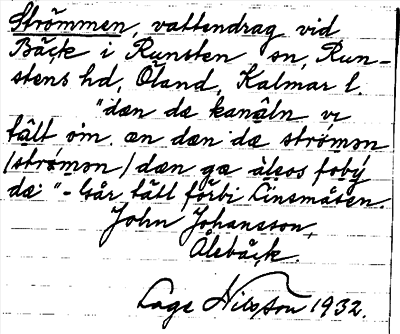 Strömmen, vattendrag vid
Bäck i Runsten sn, Run-
stens hd, Öland, Kalmar l.
"dæn dæ kanäln vi
tält òm. æn dæn dæ strømən
/strømən/ dæn gæ àlsos fobý
dæ." - Går tätt förbi Linsmåsen.
John Johansson,
Ålebäck.
Lage Nilsson 1932.